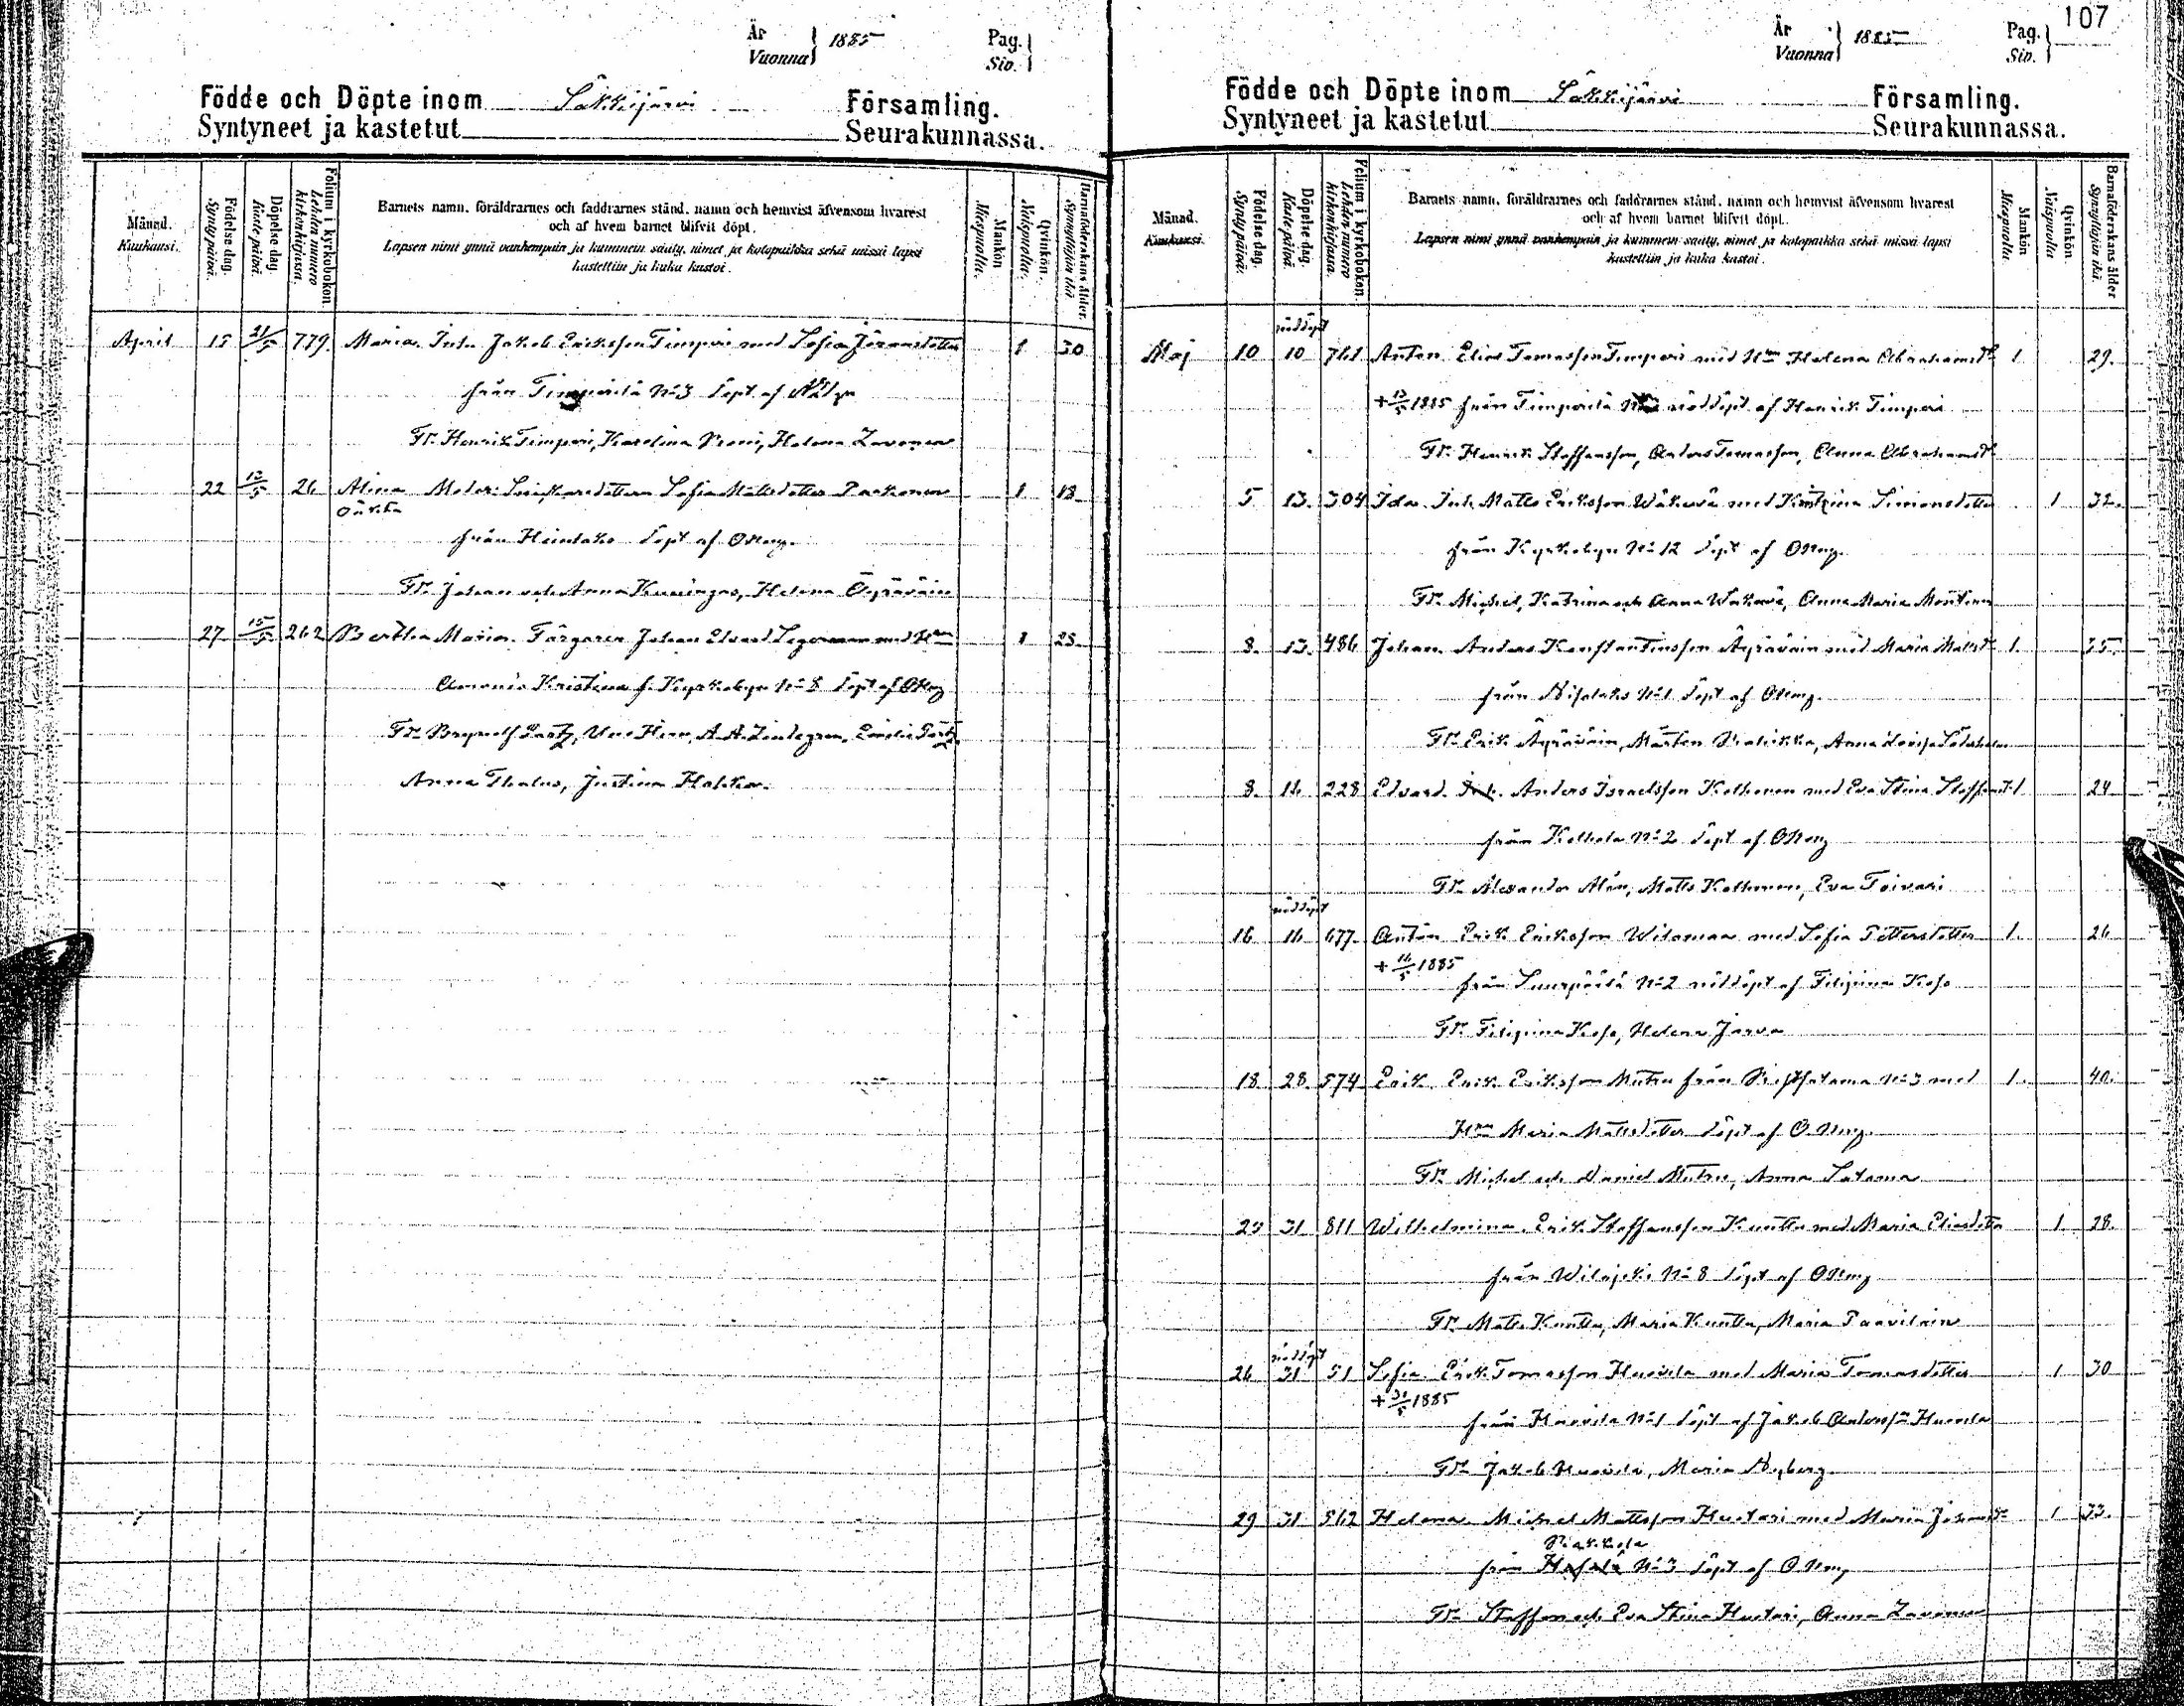 År 1885 Pag.
Vuonna Siv.
Födde och Döpte inom Säkkijärvi Församling.
Syntyneet ja kastetut Seurakunnassa.
Månad. Kuukausi.
Födelse dag. Synty päivä.
Döpelse dag. Kaste päivä.
Folium i kyrkoboken. Lehden numero kirkonkirjassa.
Barnets namn, föräldrarnes och faddrarnes stånd, namn och hemvist äfvensom hvarest
och af hvem barnet blifvit döpt.
Lapsen nimi ynnä vanhempain ja kummein sääty, nimet ja kotopaikka sekä missä lapsi
kastettiin ja kuka kastoi.
Mankön Miespuolta.
Qvinkön. Naispuolta.
Barnaföderskans ålder. Synnyttäjän ikä.
April 15 21/5 779. Maria. Inh. Jakob Eriksson Timperi med Sofia Göransdotter 1 30
från Timperilä No 3 döpt af
Fr. Henrik Timperi, Karolina Broni, Helena Lavonen
22 12/5 26 Alina Moder: Sofia Mattsdotter Parkonen 1 18
oäkta
från Heinlaks döpt af
Fr. Johan och Anna Kuningas, Helena Äyräväin
27 15/5 262 Bertha Maria. Färgaren Johan Edvard Legerman med Hun 1 25
Amanda Kristina f. Kyrkobyn No 8 döpt af
Fr. Brynolf A. A. Lindegren, Emilie
Anna Thelus, Justina Hakka.
107
År 1885 Pag.
Vuonna Siv.
Födde och Döpte inom Säkkijärvi Församling.
Syntyneet ja kastetut Seurakunnassa.
Månad. Kuukausi.
Födelse dag. Synty päivä.
Döpelse dag. Kaste päivä.
Folium i kyrkoboken. Lehden numero kirkonkirjassa.
Barnets namn, föräldrarnes och faddrarnes stånd, namn och hemvist äfvensom hvarest
och af hvem barnet blifvit döpt.
Lapsen nimi ynnä vanhempain ja kummein sääty, nimet ja kotopaikka sekä missä lapsi
kastettiin ja kuka kastoi.
Mankön Miespuolta.
Qvinkön. Naispuolta
Barnaföderskans ålder Synnyttäjän ikä.
nöddöpt
Maj 10 10 761 Anton. Elias Tomasson Timperi med Hun Helena Abrahamsdr 1. 29.
+ 13/5 1885 från Timperilä nöddöpt af Henrik Timperi
Fr. Henrik Staffansson, Anders Tomasson, Anna Abrahamsdr
5 13. 304 Ida. Inh. Matts Eriksson Wäkevä med Kristina Simonsdotter 1 32.
från Kyrkobyn No 12 döpt af
Fr. Michel, Katrina och Anna Wäkevä, Anna Maria
8. 13. 486 Johan. Anders Konstantinsson Äyräväin med Maria Mattsdr 1. 35.
från No 1 döpt af
Fr. Erik Äyräväin, Mårten Anna Lovisa
8. 16 228 Edvard. Anders Israelsson Kolhonen med Eva Stina Staffansdr 1 24
från Kolhola No 2 döpt af
Fr. Alexander Matts Kolhonen, Eva Toivari
nöddöpt
16 16 677. Anton Erik Eriksson Wilamaa med Sofia Pettersdotter 1. 26
+ 16/5 1885
från Suurpäälä No 2 nöddöpt af Filippina Koso
Fr. Filippina Koso, Helena Jarva
18 28. 574 Erik. Erik Eriksson Mutru från No 3 med 1. 40.
Hun Maria Mattsdotter döpt af
Fr. Michel och Daniel Mutru, Anna Satama
20 31 811 Wilhelmina. Erik Staffansson Kunttu med Maria Eliasdotter 1. 28.
från Wilajoki No 8 döpt af
Fr. Matts Kunttu, Maria Kunttu, Maria Paavilain
nöddöpt
26 31 51 Sofia. Erik Tomasson Huovila med Maria Tomasdotter 1 30
+ 31/5 1885
från Huovila No 1 döpt af Jakob Andersson Huovila
Fr. Jakob Huovila, Maria Nyberg
29 31 562 Helena. Michel Mattsson Hustari med Maria Johansdr 1 33.
från No 3 döpt af
Fr. Staffan och Eva Stina Hustari, Anna Lavonen